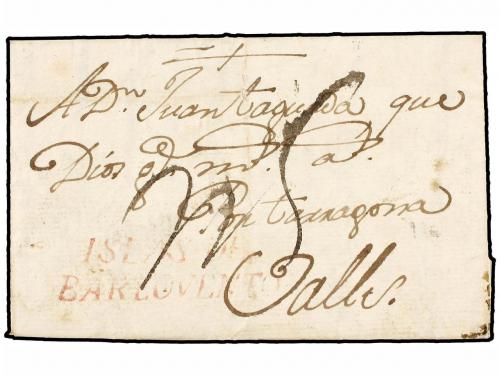 A Dn. Juan taguda que
Dios gde. ms. as.
Por tarragona
Valls.
ISLAS DE
BARLOVENTO